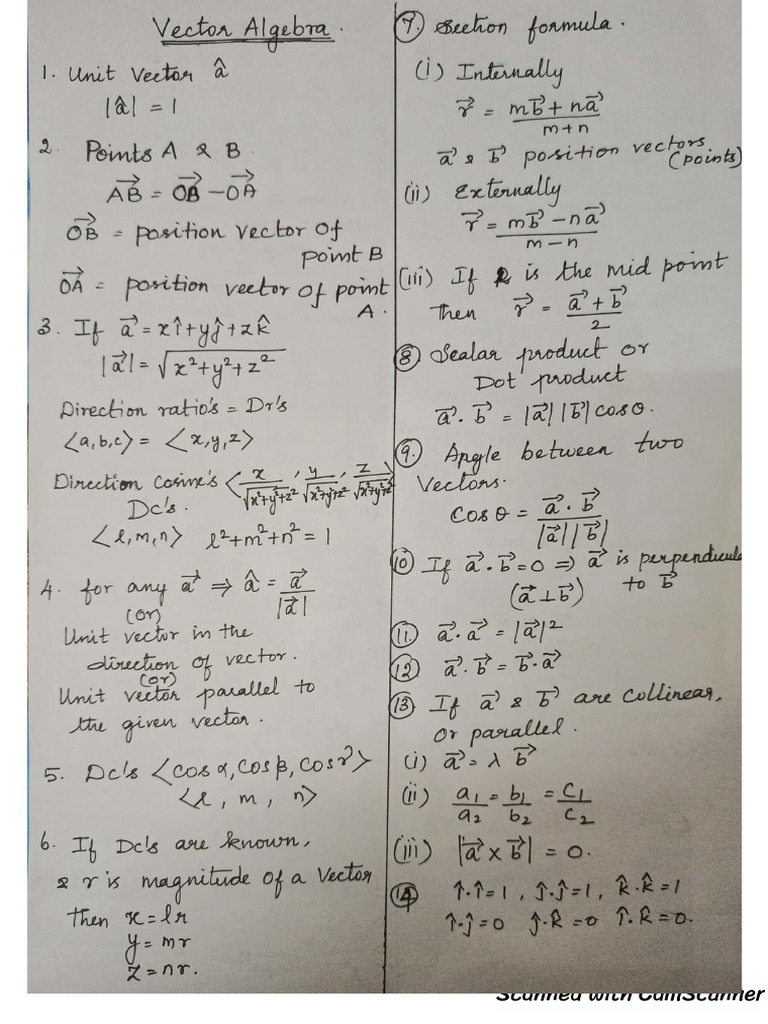 Vector Algebra.
1. Unit Vector â
|â| = 1
2. Points A & B.
AB⃗ = OB⃗ - OA⃗
OB⃗ = position vector of
point B
OA⃗ = position vector of point
A.
3. If a⃗ = xî+yĵ+zk̂
|a⃗| = √(x²+y²+z²)
Direction ratio's = Dr's
<a,b,c> = <x,y,z>
Direction cosine's <x/√(x²+y²+z²), y/√(x²+y²+z²), z/√(x²+y²+z²)>
Dc's.
<l,m,n> l²+m²+n² = 1
4. for any a⃗ ⇒ â = a⃗/|a⃗|
(or)
Unit vector in the
direction of vector.
(or)
Unit vector parallel to
the given vector.
5. Dc's <cos α, cos β, cos γ>
<l, m, n>
6. If Dc's are known,
& r is magnitude of a Vector
then x = lr
y = mr
z = nr.
7. Section formula.
(i) Internally
r⃗ = (mb⃗ + na⃗)/(m+n)
a⃗ & b⃗ position vectors
(points)
(ii) Externally
r⃗ = (mb⃗ - na⃗)/(m-n)
(iii) If R is the mid point
then r⃗ = (a⃗ + b⃗)/2
8 Scalar product or
Dot product
a⃗. b⃗ = |a⃗| |b⃗| cos θ.
9. Angle between two
Vectors.
Cos θ = (a⃗ . b⃗)/(|a⃗| |b⃗|)
10 If a⃗. b⃗ = 0 ⇒ a⃗ is perpendicula
(a⃗ ⊥ b⃗) to b⃗
11. a⃗. a⃗ = |a⃗|²
12 a⃗. b⃗ = b⃗. a⃗
13 If a⃗ & b⃗ are collinear,
or parallel.
(i) a⃗ = λ b⃗
(ii) a₁/a₂ = b₁/b₂ = c₁/c₂
(iii) |a⃗ × b⃗| = 0.
14 î.î = 1, ĵ.ĵ = 1, k̂.k̂ = 1
î.ĵ = 0 ĵ.k̂ = 0 î.k̂ = 0.
Scanned with CamScanner